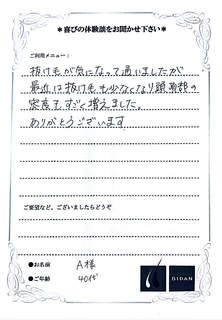 ＊喜びの体験談をお聞かせ下さい＊
ご利用メニュー：
抜け毛が気になって通いましたが
最近は抜け毛も少なくなり頭頂部の
密度もすごく増えました。
ありがとうございます
ご要望など、ございましたらどうぞ
●お名前 A様
●ご年齢 40代
BIDAN